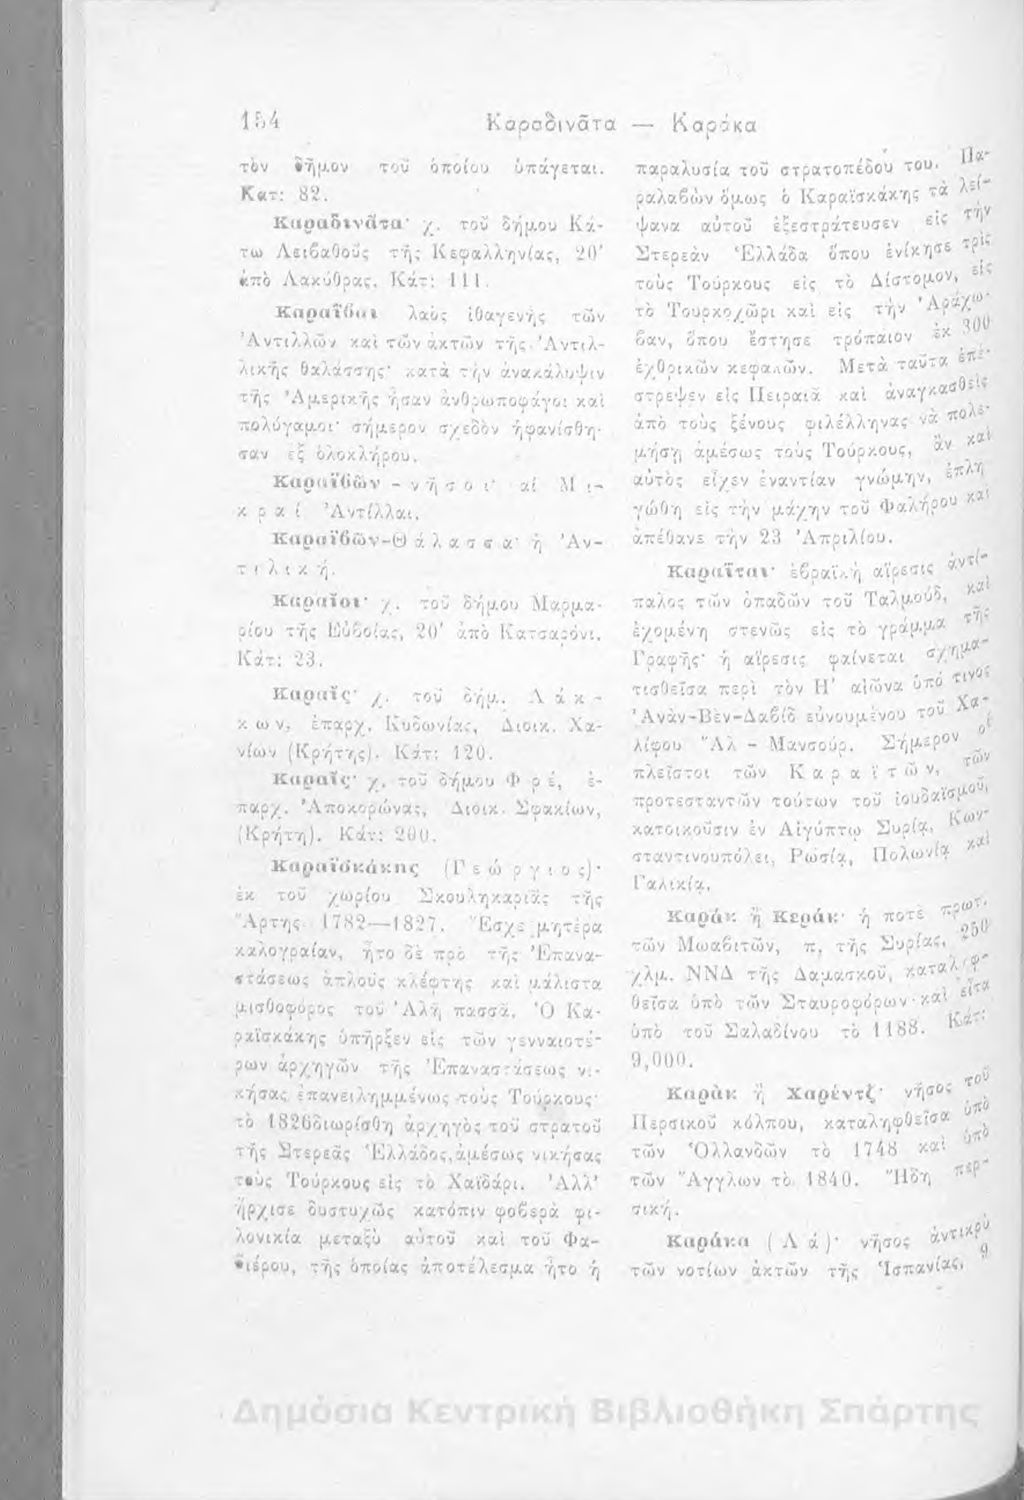 154 Καραδινᾶτα — Καράκα
τὸν δῆμον τοῦ ὁποίου ὑπάγεται.
Κατ: 82.
Καραδινᾶτα· χ. τοῦ δήμου Κά-
τω Λειβαθοῦς τῆς Κεφαλληνίας, 20'
ἀπὸ Λακύθρας. Κάτ: 111.
Καραΐβαι λαὸς ἰθαγενὴς τῶν
Ἀντιλλῶν καὶ τῶν ἀκτῶν τῆς Ἀντιλ-
λικῆς θαλάσσης· κατὰ τὴν ἀνακάλυψιν
τῆς Ἀμερικῆς ἦσαν ἀνθρωποφάγοι καὶ
πολύγαμοι· σήμερον σχεδὸν ἠφανίσθη-
σαν ἐξ ὁλοκλήρου.
Καραϊβῶν - νῆσοι· αἱ Μι-
κραὶ Ἀντίλλαι.
Καραϊβῶν-Θάλασσα· ἡ Ἀν-
τιλικὴ.
Καραῖοι· χ. τοῦ δήμου Μαρμα-
ρίου τῆς Εὐβοίας, 20' ἀπὸ Κατσαρόνι.
Κάτ: 23.
Καραῖς· χ. τοῦ δήμ. Λάκ-
κων, ἐπαρχ. Κυδωνίας, Διοικ. Χα-
νίων (Κρήτης). Κάτ: 120.
Καραῖς· χ. τοῦ δήμου Φρέ, ἐ-
παρχ. Ἀποκορώνας, Διοικ. Σφακίων,
(Κρήτη). Κάτ: 200.
Καραϊσκάκης (Γεώργιος)·
ἐκ τοῦ χωρίου Σκουληκαριᾶς τῆς
Ἄρτης 1782—1827. Ἔσχε μητέρα
καλογραίαν, ἦτο δὲ πρὸ τῆς Ἐπανα-
στάσεως ἁπλοῦς κλέφτης καὶ μάλιστα
μισθοφόρος τοῦ Ἀλῆ πασσᾶ. Ὁ Κα-
ραϊσκάκης ὑπῆρξεν εἷς τῶν γενναιοτέ-
ρων ἀρχηγῶν τῆς Ἐπαναστάσεως νι-
κήσας ἐπανειλημμένως τοὺς Τούρκους·
τὸ 1826 διωρίσθη ἀρχηγὸς τοῦ στρατοῦ
τῆς Στερεᾶς Ἑλλάδος, ἀμέσως νικήσας
τοὺς Τούρκους εἰς τὸ Χαϊδάρι. Ἀλλ'
ἤρχισε δυστυχῶς κατόπιν φοβερὰ φι-
λονικία μεταξὺ αὐτοῦ καὶ τοῦ Φα-
βιέρου, τῆς ὁποίας ἀποτέλεσμα ἦτο ἡ
παραλυσία τοῦ στρατοπέδου του. Πα-
ραλαβὼν ὅμως ὁ Καραϊσκάκης τὰ λεί-
ψανα αὐτοῦ ἐξεστράτευσεν εἰς τὴν
Στερεὰν Ἑλλάδα ὅπου ἐνίκησε τρὶς
τοὺς Τούρκους εἰς τὸ Δίστομον, εἰς
τὸ Τουρκοχῶρι καὶ εἰς τὴν Ἀράχω-
βαν, ὅπου ἔστησε τρόπαιον ἐκ 300
ἐχθρικῶν κεφαλῶν. Μετὰ ταῦτα ἐπέ-
στρεψεν εἰς Πειραιᾶ καὶ ἀναγκασθεὶς
ἀπὸ τοὺς ξένους φιλέλληνας νὰ πολε-
μήσῃ ἀμέσως τοὺς Τούρκους, ἂν καὶ
αὐτὸς εἶχεν ἐναντίαν γνώμην, ἐπλη-
γώθη εἰς τὴν μάχην τοῦ Φαλήρου καὶ
ἀπέθανε τὴν 23 Ἀπριλίου.
Καραῖται· ἑβραϊκὴ αἵρεσις ἀντί-
παλος τῶν ὀπαδῶν τοῦ Ταλμούδ, καὶ
ἐχομένη στενῶς εἰς τὸ γράμμα τῆς
Γραφῆς· ἡ αἵρεσις φαίνεται σχημα-
τισθεῖσα περὶ τὸν Η' αἰῶνα ὑπό τινος
Ἀνὰν-Βὲν-Δαβὶδ εὐνουμένου τοῦ Χα-
λίφου Ἂλ - Μανσούρ. Σήμερον οἱ
πλεῖστοι τῶν Καραϊτῶν, τῶν
προτεσταντῶν τούτων τοῦ ἰουδαϊσμοῦ,
κατοικοῦσιν ἐν Αἰγύπτῳ Συρίᾳ, Κων-
σταντινουπόλει, Ρωσίᾳ, Πολωνίᾳ καὶ
Γαλικίᾳ.
Καρὰκ ἢ Κερὰκ· ἡ ποτὲ πρωτ.
τῶν Μωαβιτῶν, π. τῆς Συρίας, 250
χλμ. ΝΝΔ τῆς Δαμασκοῦ, καταληφ-
θεῖσα ὑπὸ τῶν Σταυροφόρων καὶ εἶτα
ὑπὸ τοῦ Σαλαδίνου τὸ 1188. Κάτ:
9,000.
Καρὰκ ἢ Χαρέντζ· νῆσος τοῦ
Περσικοῦ κόλπου, καταληφθεῖσα ὑπὸ
τῶν Ὁλλανδῶν τὸ 1748 καὶ ὑπὸ
τῶν Ἄγγλων τὸ 1840. Ἤδη περ-
σική.
Καράκα (Λά)· νῆσος ἀντικρὺ
τῶν νοτίων ἀκτῶν τῆς Ἱσπανίας, 9
Δημόσια Κεντρική Βιβλιοθήκη Σπάρτης